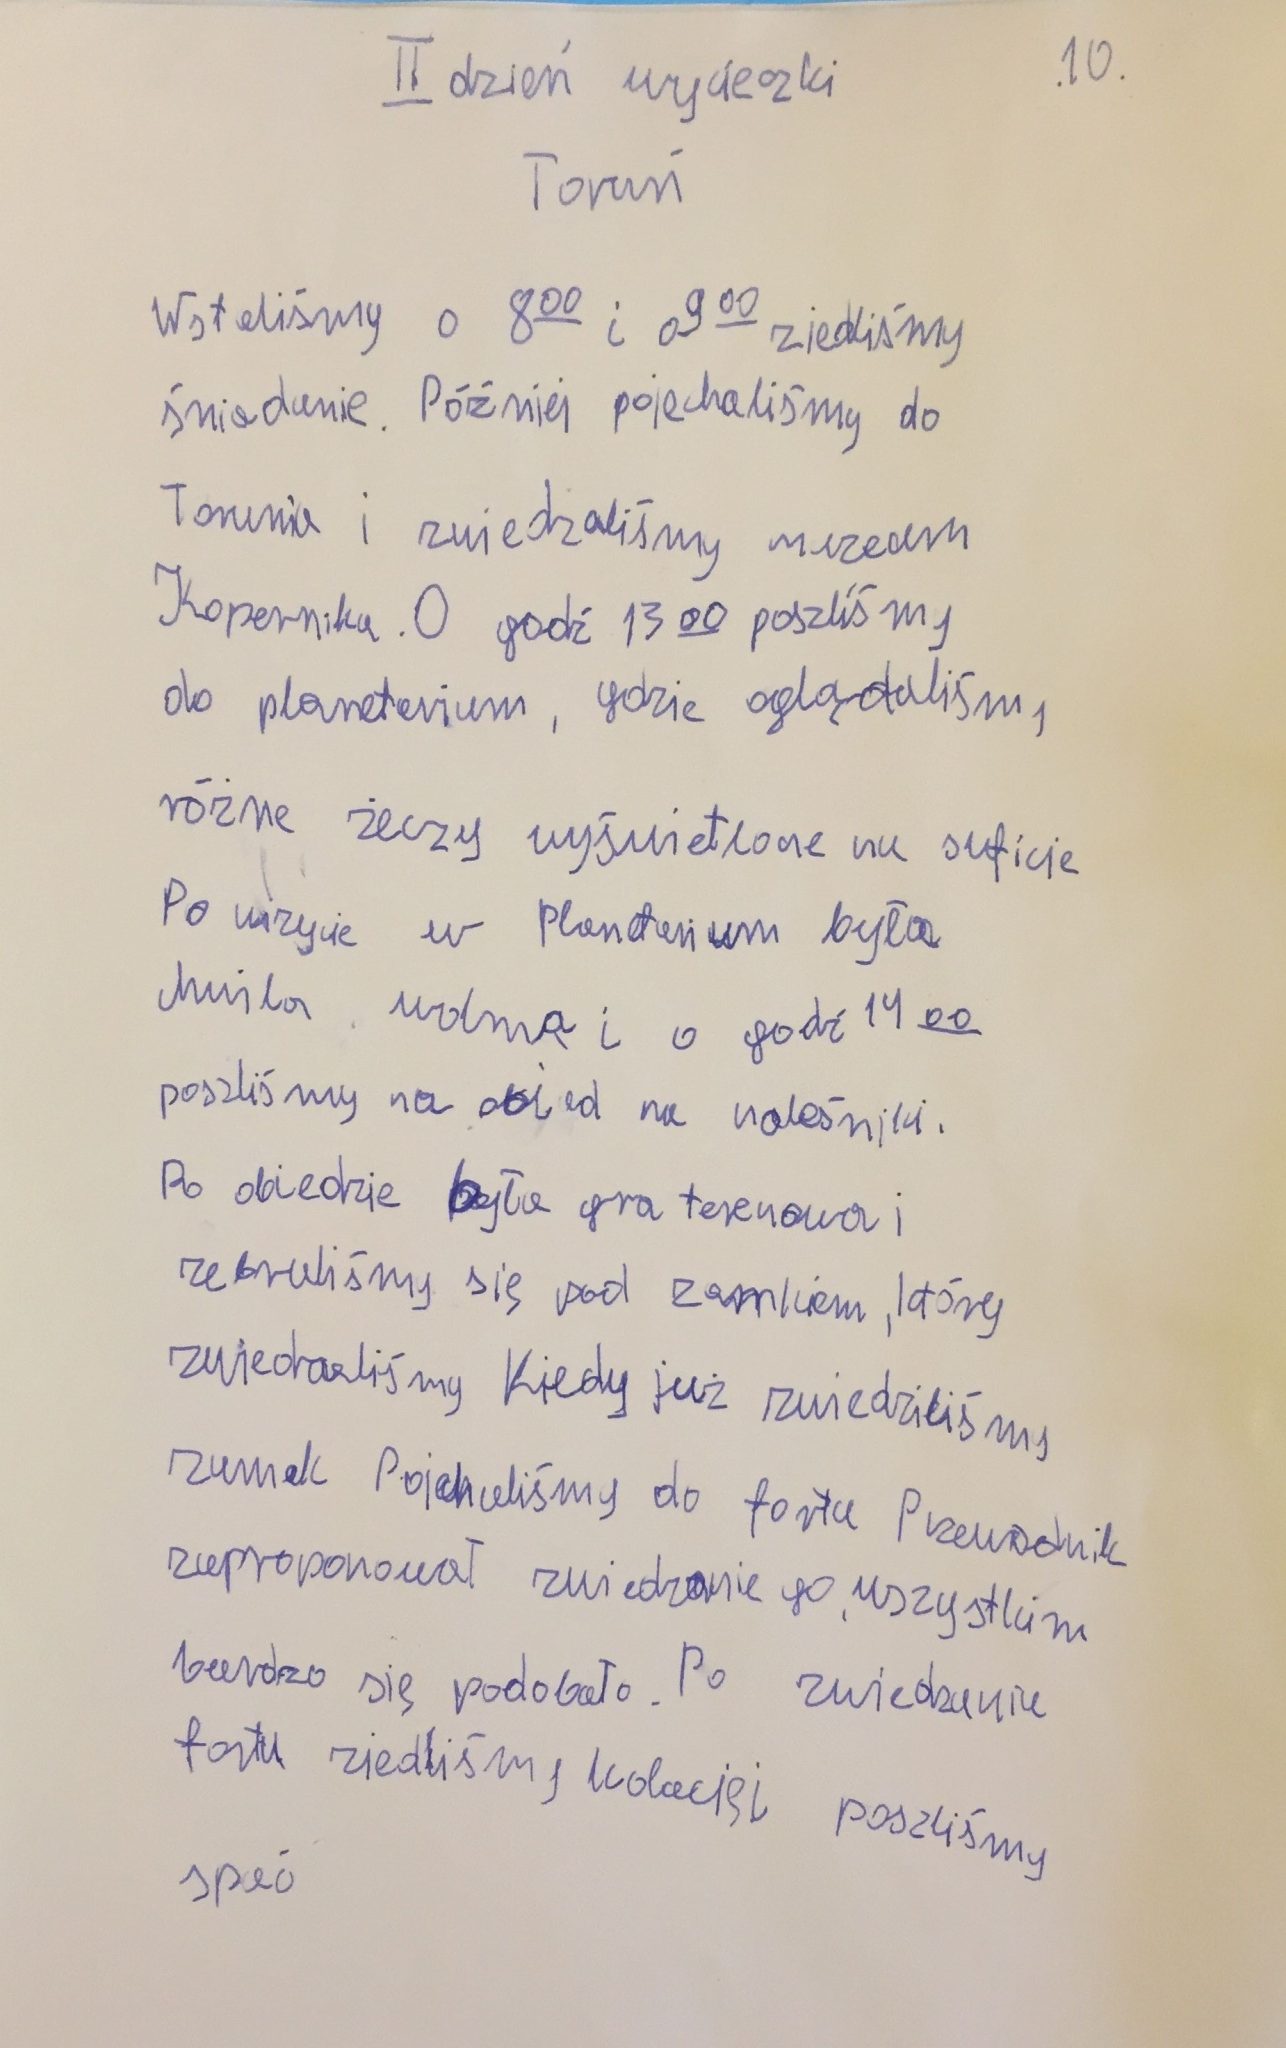 II dzień wycieczki 10.
Toruń
Wstaliśmy o 8 00 i o 9 00 ziedliśmy
śniadanie. Później pojechaliśmy do
Torunia i zwiedzaliśmy muzeum
Kopernika. O godź 13 00 poszliśmy
do planetarium, gdzie oglądaliśmy
różne żeczy wyświetlone na suficie
Po wizycie w Planetarium była
chwila wolną i o godź 14 00
poszliśmy na obiad na naleśniki.
Po obiedzie była gra terenowa i
zebraliśmy się pod zamkiem, który
zwiedzaliśmy Kiedy już zwiedziliśmy
zamek Pojechaliśmy do fortu Przewodnik
zaproponował zwiedzanie go, wszystkim
bardzo się podobało. Po zwiedzanie
fortu ziedliśmy kolację i poszliśmy
spać